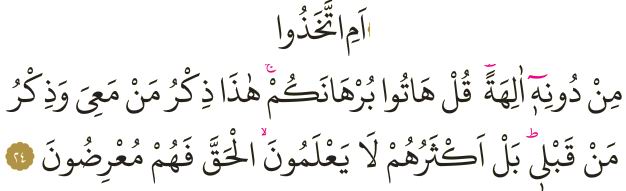 اَمِ اتَّخَذُوا
مِنْ دُونِهٖٓ اٰلِهَةًۜ قُلْ هَاتُوا بُرْهَانَكُمْۚ هٰذَا ذِكْرُ مَنْ مَعِيَ وَذِكْرُ
مَنْ قَبْلٖيۜ بَلْ اَكْثَرُهُمْ لَا يَعْلَمُونَۙ الْحَقَّ فَهُمْ مُعْرِضُونَ ٢٤